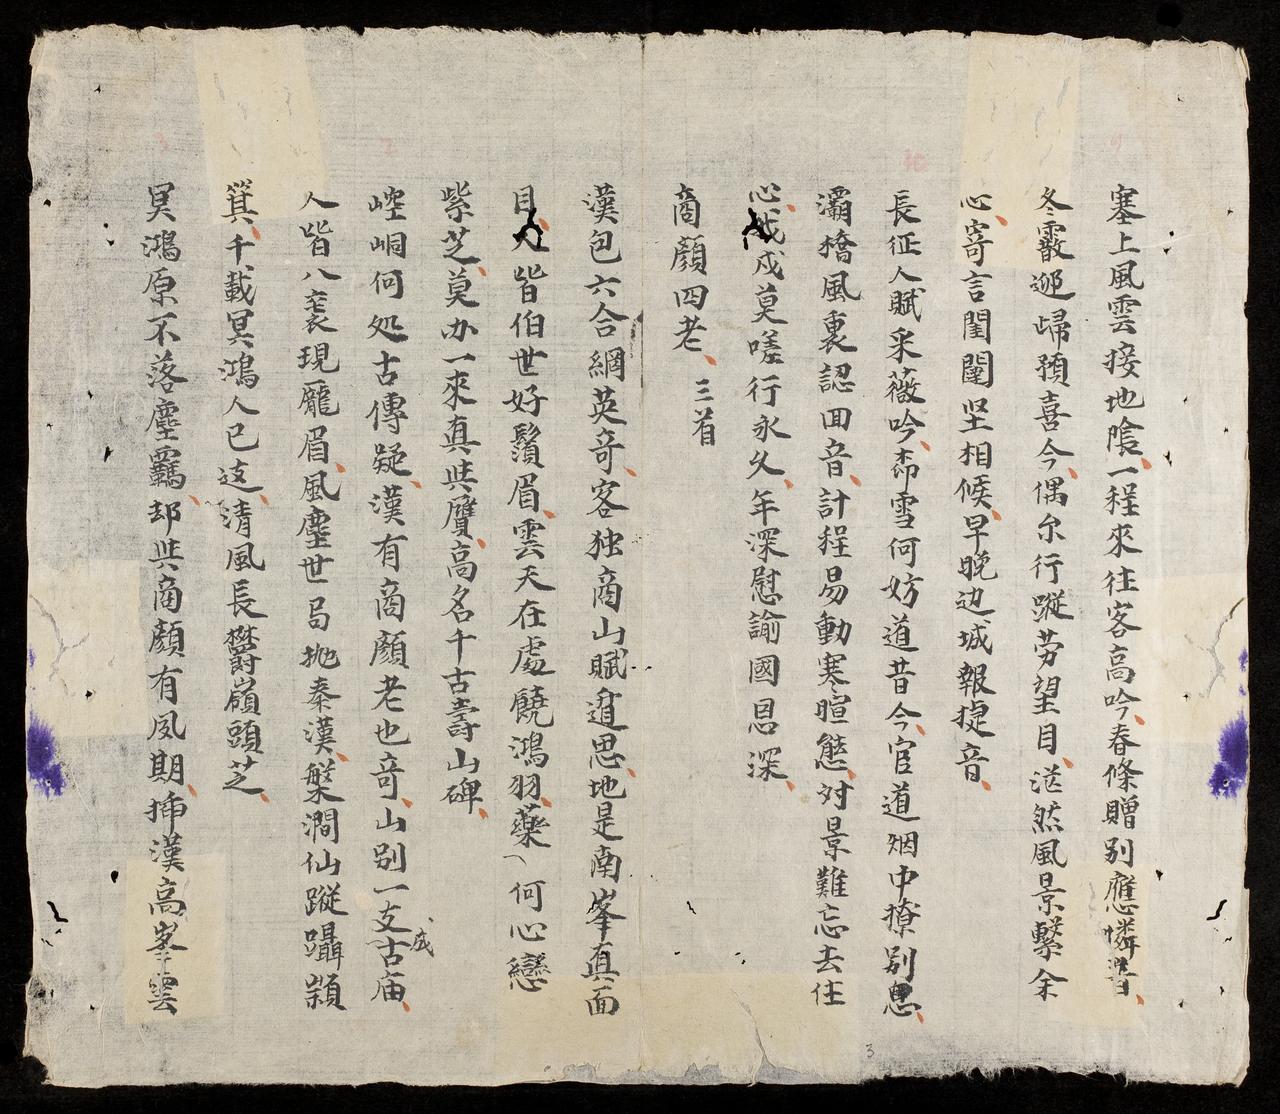 塞上風雲接地陰一程來往客高吟春條贈別應憐昔
冬霰遄歸預喜今偶尔行蹤劳望目茫然風景繫余
心寄言閨闥坚相候早晚边城報捷音
長征人賦采薇吟布雪何妨道昔今官道烟中撩別思
灞橋風裏認回音計程易動寒暄態对景難忘去住
心戍莫嗟行永久年深慰諭國恩深
商顏四老 三首
漢包六合網英奇客独商山賦遠思地是南峯真面
目人皆伯世好鬚眉雲天在處饒鴻羽藥何心戀
紫芝莫办一來真与贋高名千古壽山碑
崆峒何処古傳疑漢有商顏老也奇山别一支古庙
成
人皆八袠現龐眉風塵世局抛秦漢槃澗仙蹤躡潁
箕千載冥鴻人已逺清風長欝嶺頭芝
冥鴻原不落塵羈却与商顏有夙期挿漢高峯雲
3